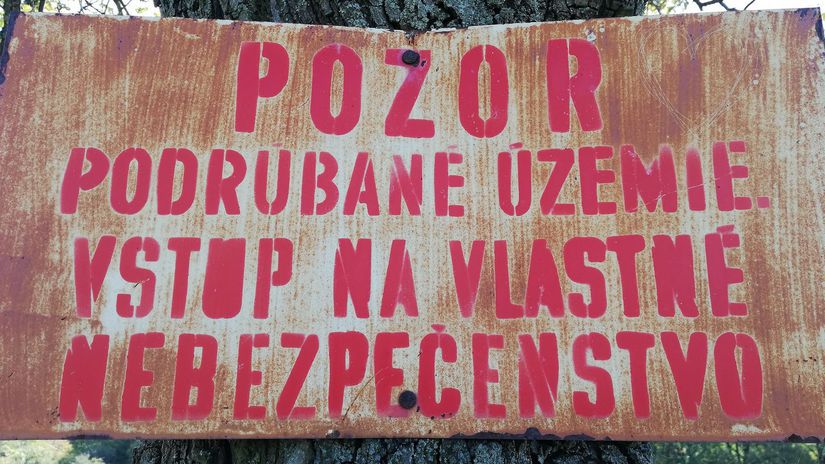 POZOR
PODRÚBANÉ ÚZEMIE.
VSTUP NA VLASTNÉ
NEBEZPEČENSTVO